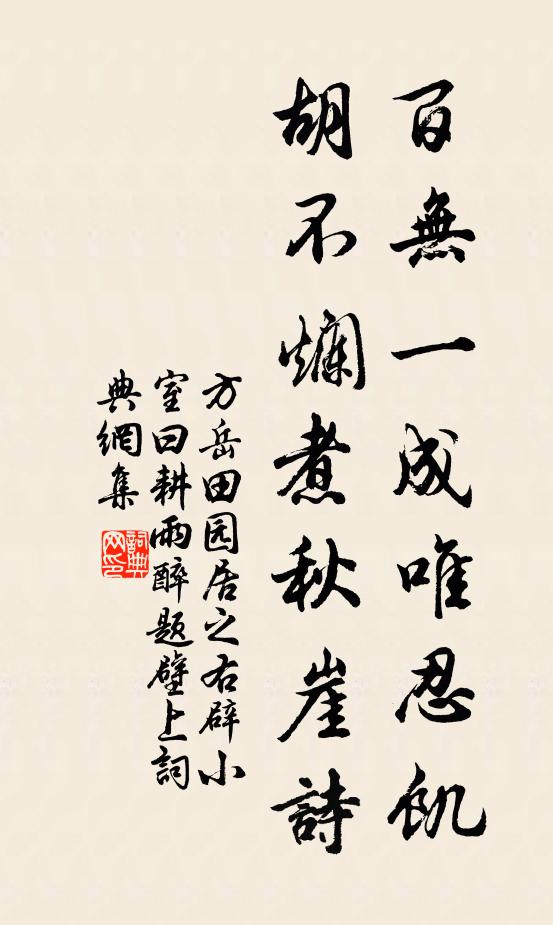 百無一成唯忍飢
胡不爛煮秋崖詩
方岳田园居之右辟小
室曰耕雨醉题壁上詞
典網集
詞典
网印